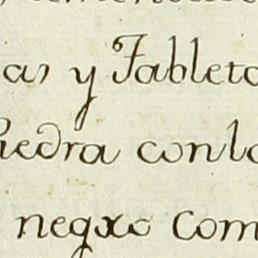 as y Tableta
Piedra conlo
negro com